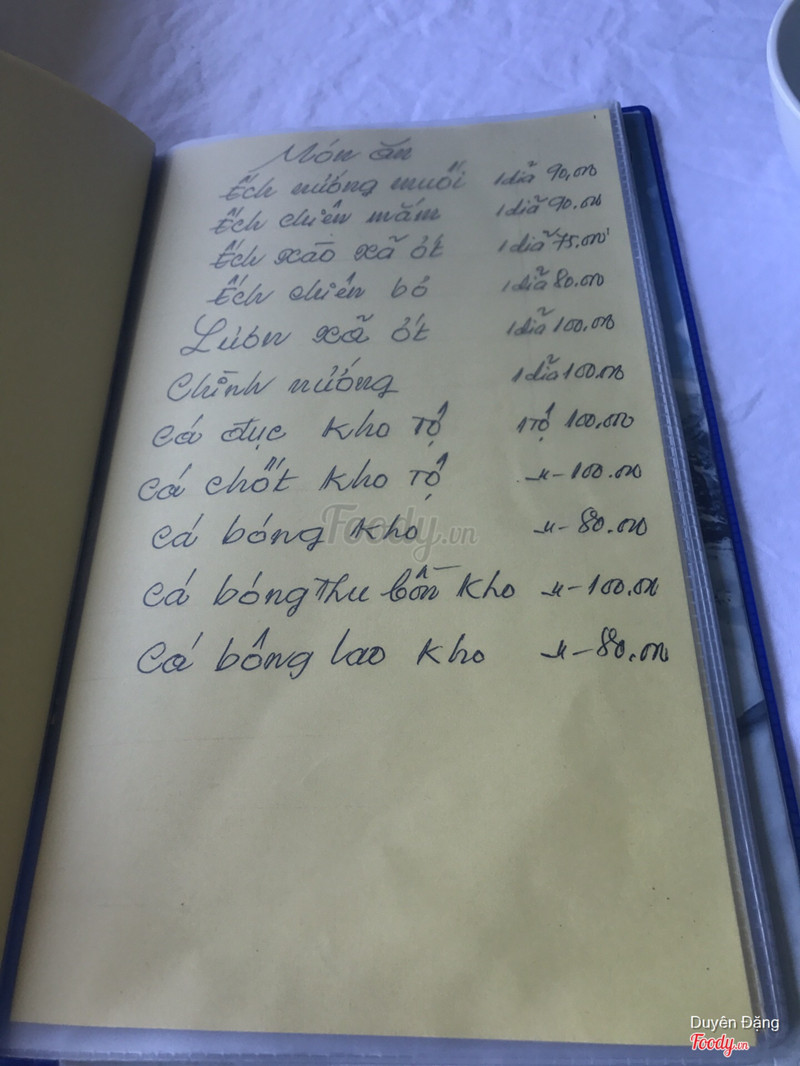 Món ăn
Ếch nướng muối 1 dĩa 90,000
Ếch chiên mắm 1 dĩa 90.000
Ếch xào xã ớt 1 dĩa 75.000
Ếch chiên bơ 1 dĩa 80.000
Lươn xã ớt 1 dĩa 100.000
Chình nướng 1 dĩa 100.000
Cá đục kho Tộ 1 Tộ 100.000
Cá chốt kho Tộ -n- 100.000
Cá bóng kho -n- 80.000
Foody.vn
Cá bóng Thu bồn kho -n- 100.000
Cá bông lao kho -n- 80.000
Duyên Đặng
Foody.vn